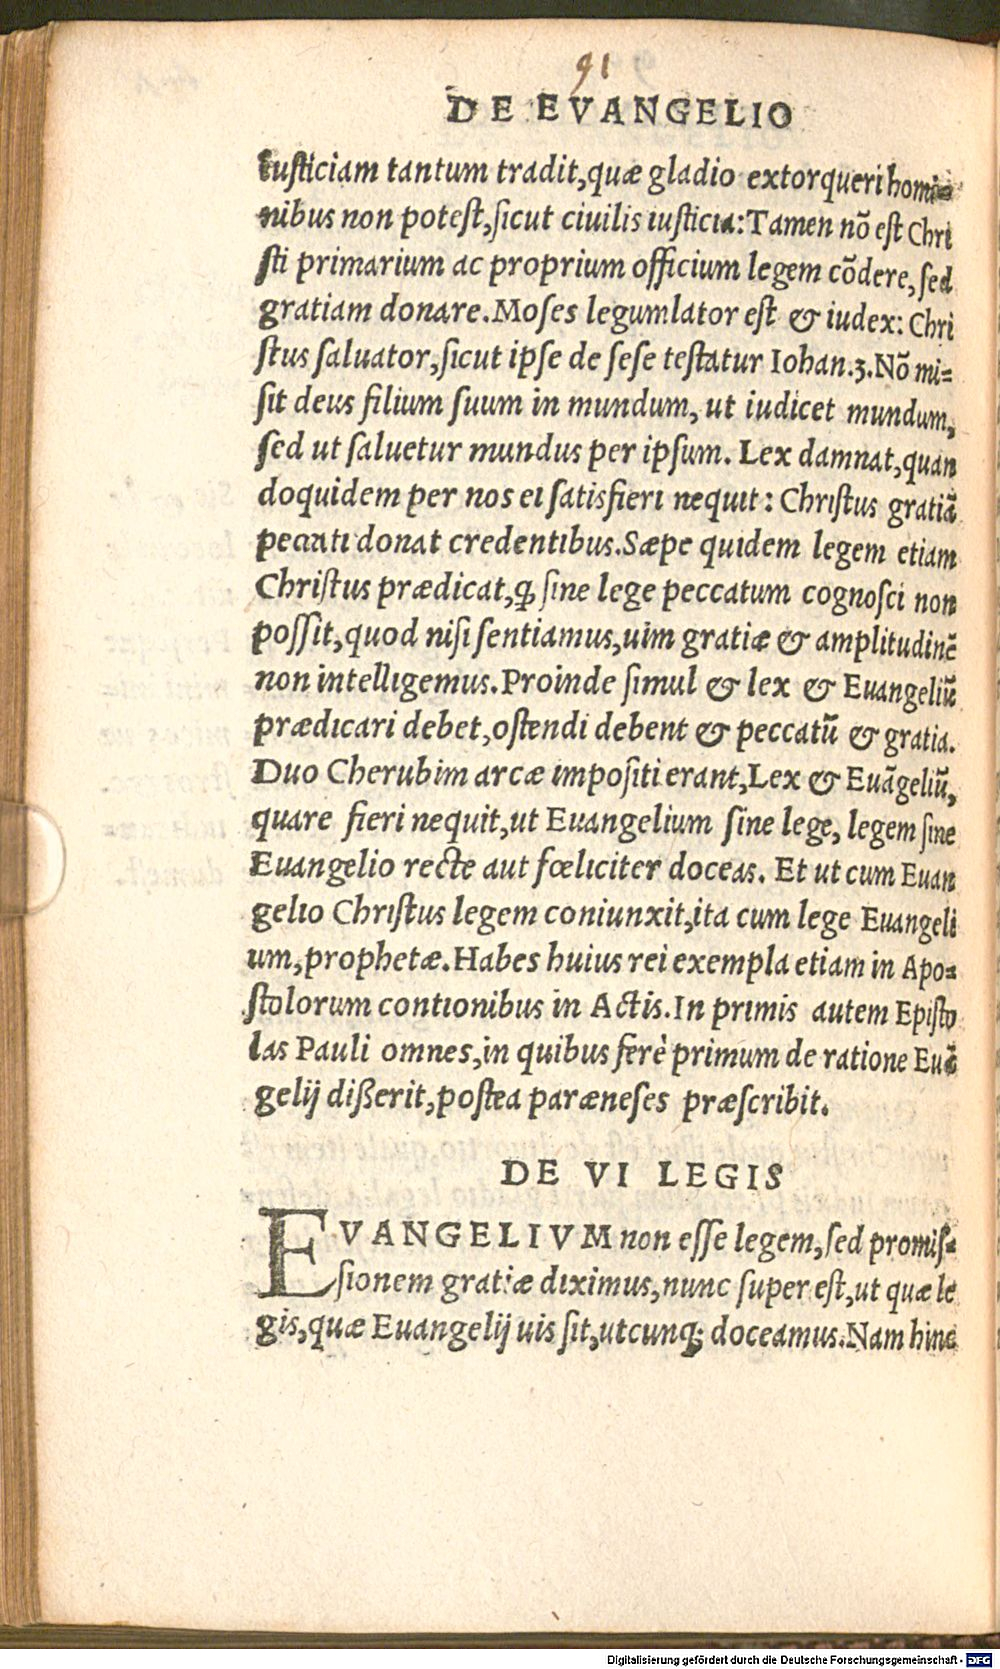 91
DE EVANGELIO
iusticiam tantum tradit,quæ gladio extorqueri homi=
nibus non potest,sicut ciuilis iusticia:Tamen nõ est Chri
sti primarium ac proprium officium legem cõdere,sed
gratiam donare.Moses legumlator est & iudex: Chri
stus saluator,sicut ipse de sese testatur Iohan.3.Nõ mi=
sit deus filium suum in mundum, ut iudicet mundum,
sed ut saluetur mundus per ipsum. Lex damnat,quan
doquidem per nos ei satisfieri nequit: Christus gratiã
peccati donat credentibus.Sæpe quidem legem etiam
Christus prædicat,ꝙ sine lege peccatum cognosci non
possit,quod nisi sentiamus,uim gratiæ & amplitudinẽ
non intelligemus.Proinde simul & lex & Euangeliũ
prædicari debet,ostendi debent & peccatũ & gratia.
Duo Cherubim arcæ impositi erant,Lex & Euãgeliũ,
quare fieri nequit,ut Euangelium sine lege, legem sine
Euangelio recte aut fœliciter doceas. Et ut cum Euan
gelio Christus legem coniunxit,ita cum lege Euangeli
um,prophetæ.Habes huius rei exempla etiam in Apo=
stolorum contionibus in Actis.In primis autem Episto
las Pauli omnes,in quibus ferè primum de ratione Euã
gelij dißerit,postea paræneses præscribit.
DE VI LEGIS
EVANGELIVM non esse legem,sed promis=
sionem gratiæ diximus,nunc super est,ut quæ le
gis,quæ Euangelij uis sit,utcunq; doceamus.Nam hinc
Digitalisierung gefördert durch die Deutsche Forschungsgemeinschaft - DFG